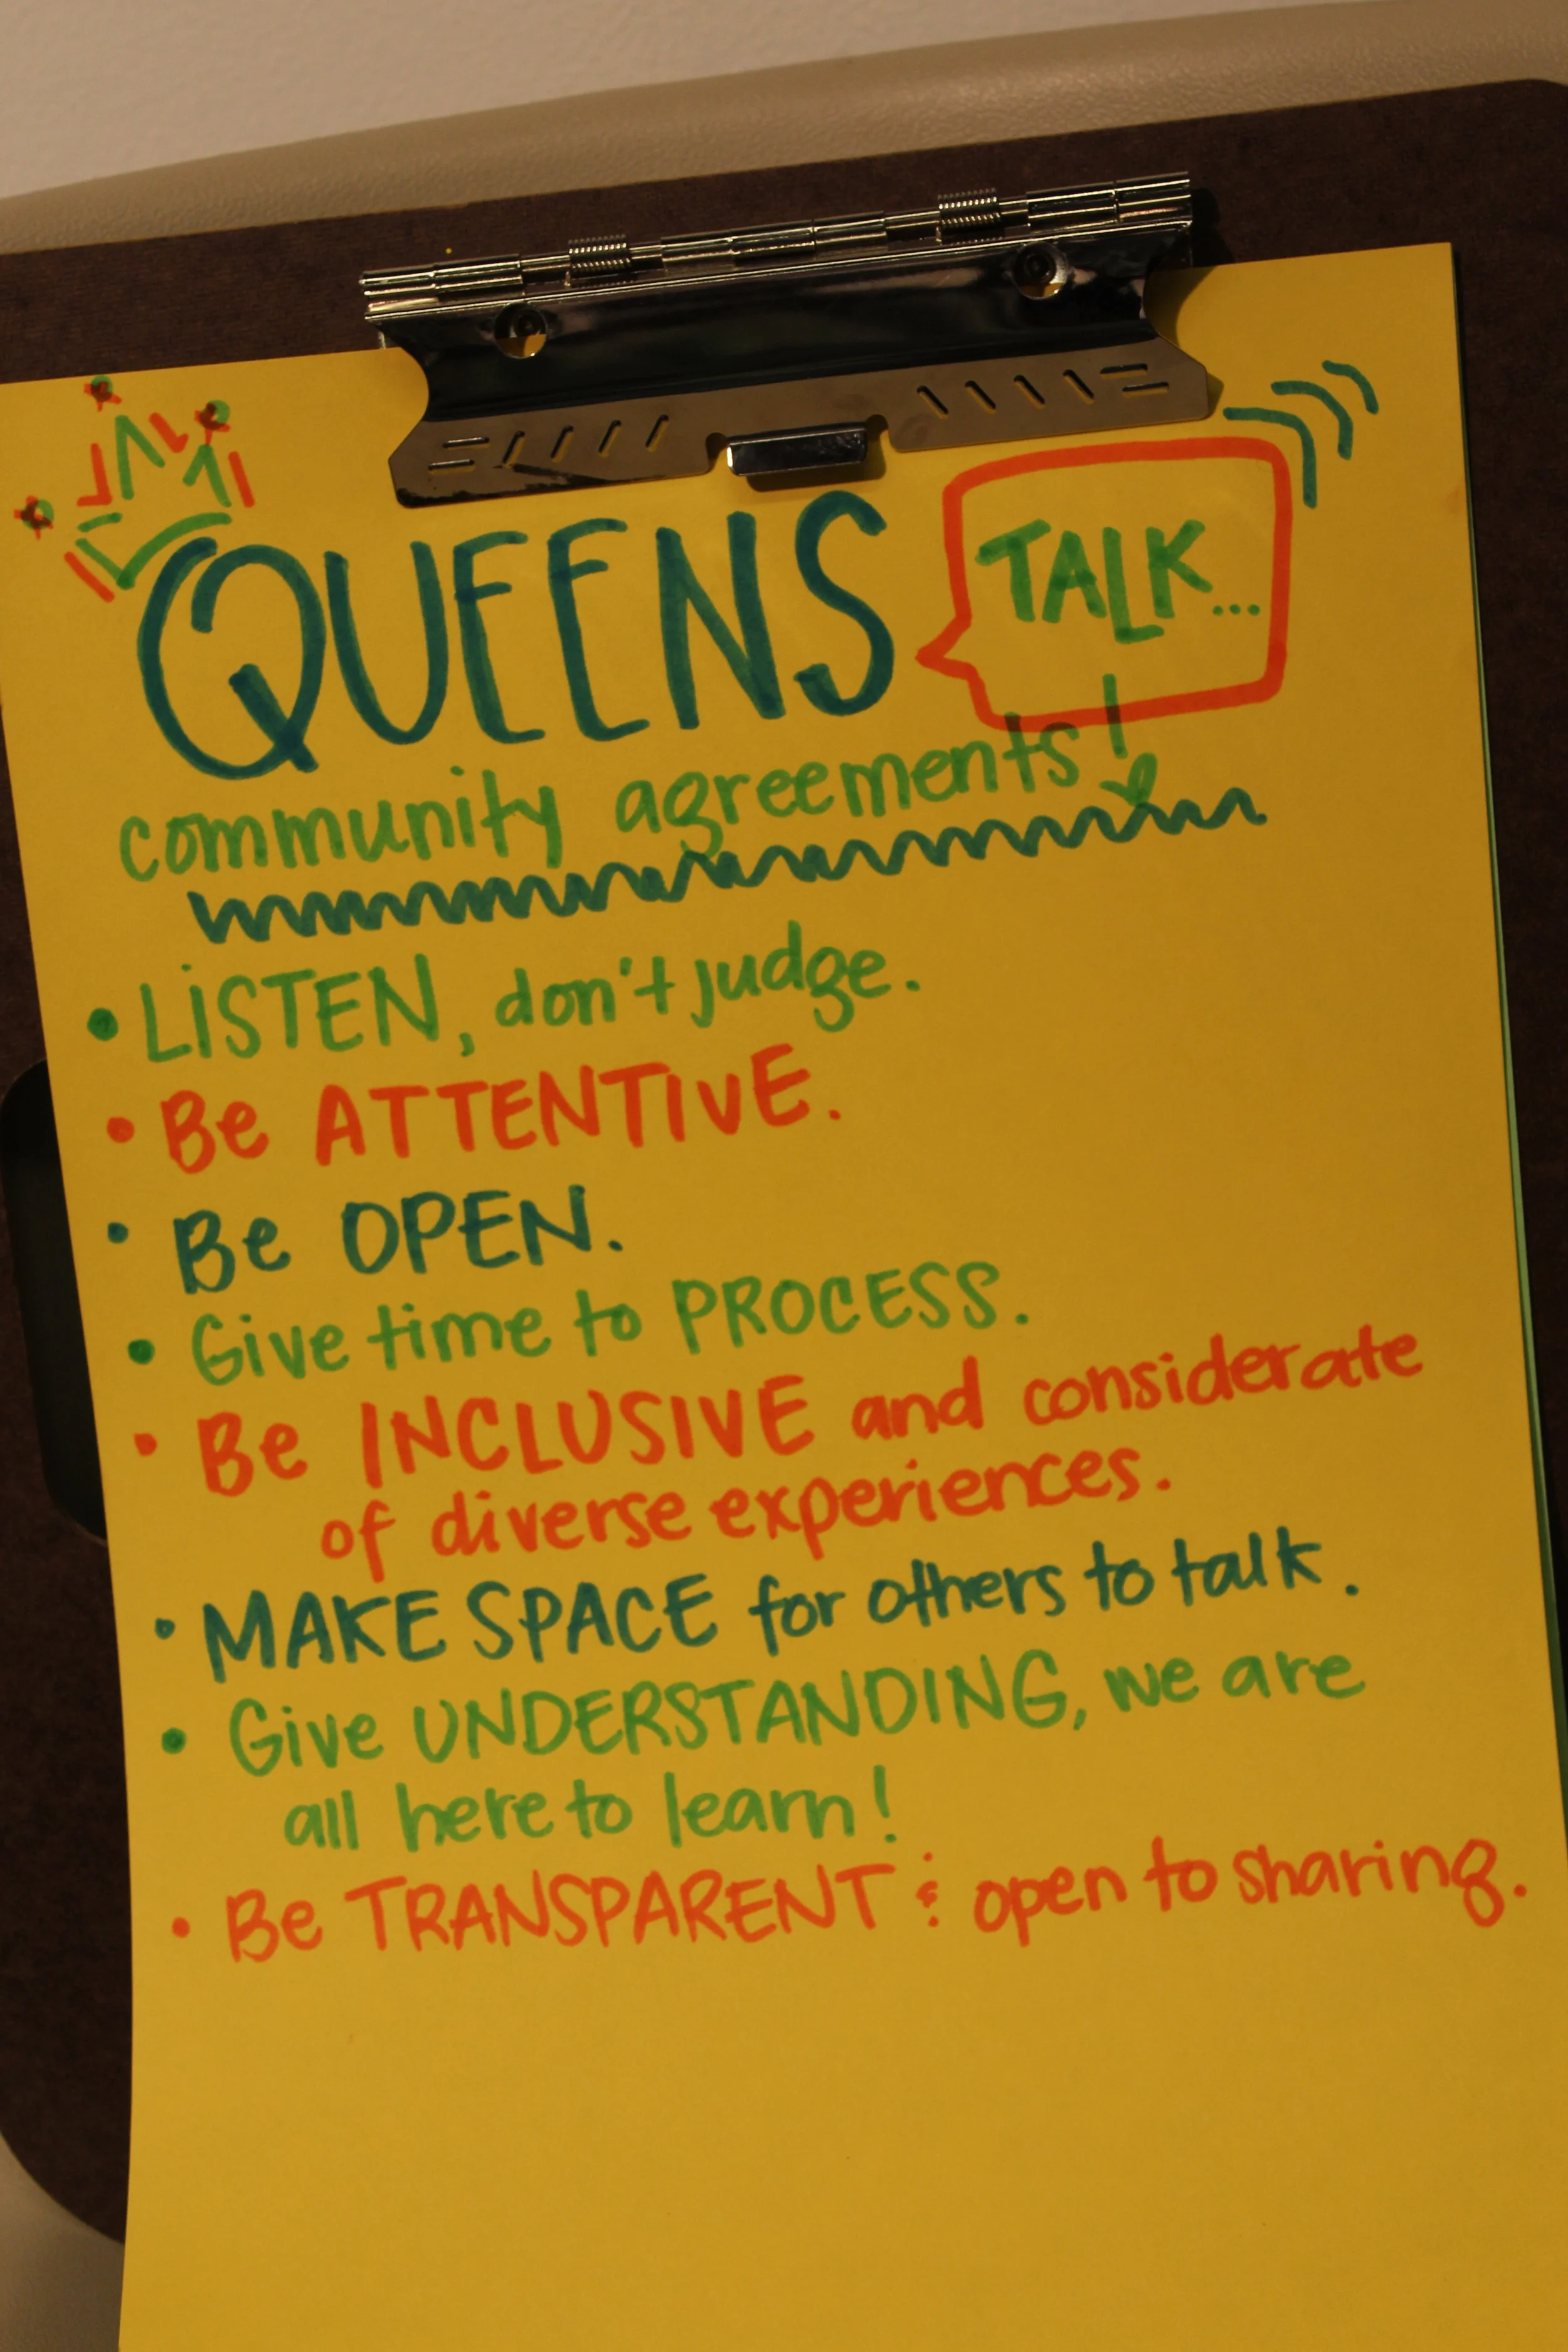 QUEENS TALK...
community agreements!
• LiSTEN, don't judge.
• Be ATTENTIVE.
• Be OPEN.
• Give time to PROCESS.
• Be INCLUSIVE and considerate
of diverse experiences.
• MAKE SPACE for others to talk.
• Give UNDERSTANDING, we are
all here to learn!
• Be TRANSPARENT & open to sharing.